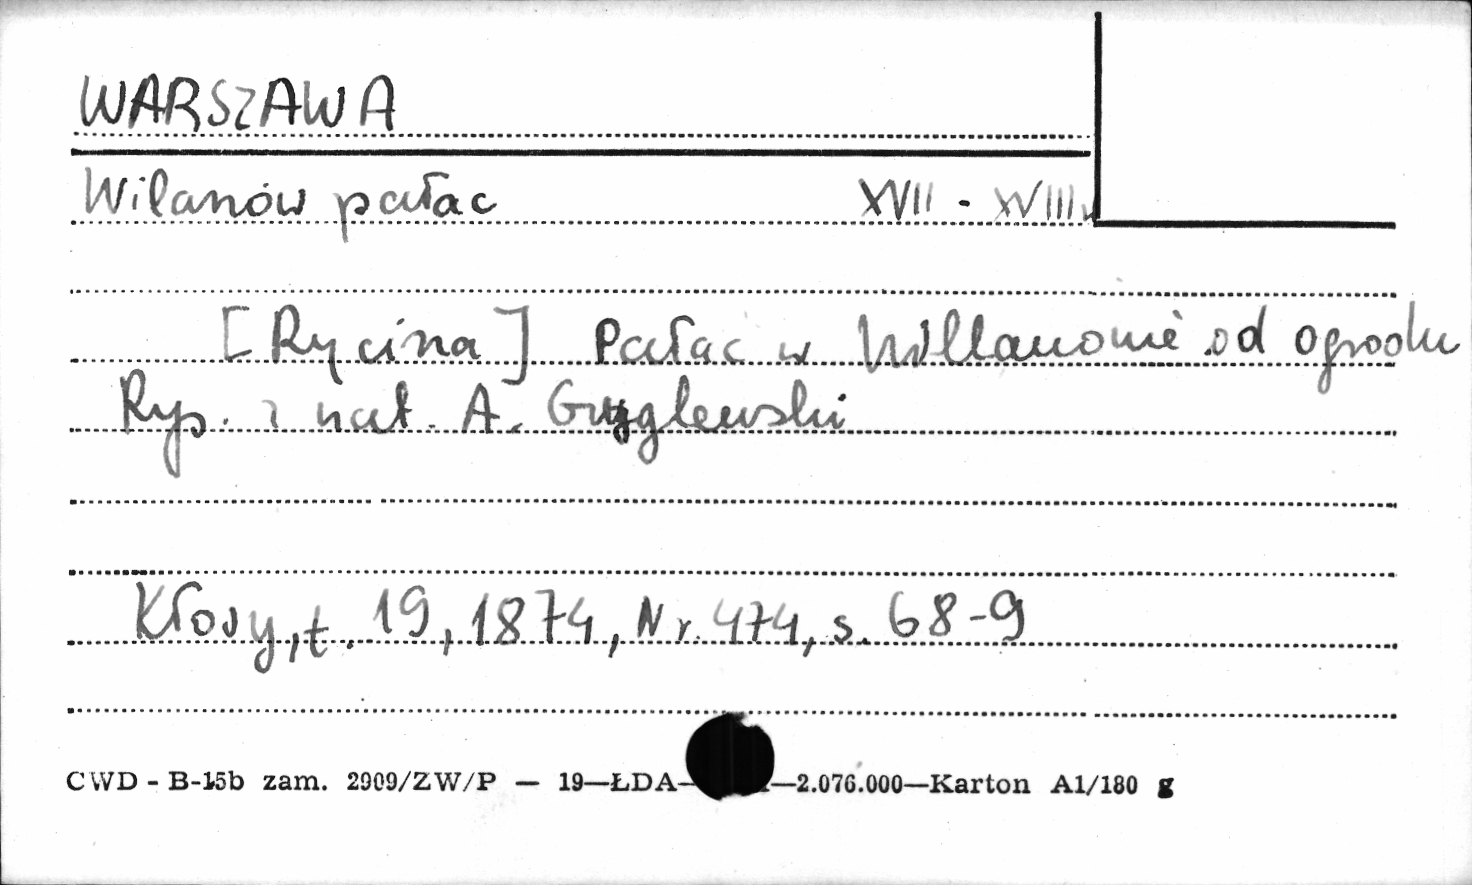 WARSZAWA
Wilanów pałac XVII - XVIII w
[Rycina] Pałac w Willanowie od ogrodu
Rys. z nat. A. Gryglewski
Kłosy, t. 19, 1874, Nr. 474, s. 68-9
CWD - B-15b zam. 2909/ZW/P — 19—ŁDA— —2.076.000—Karton A1/180 g